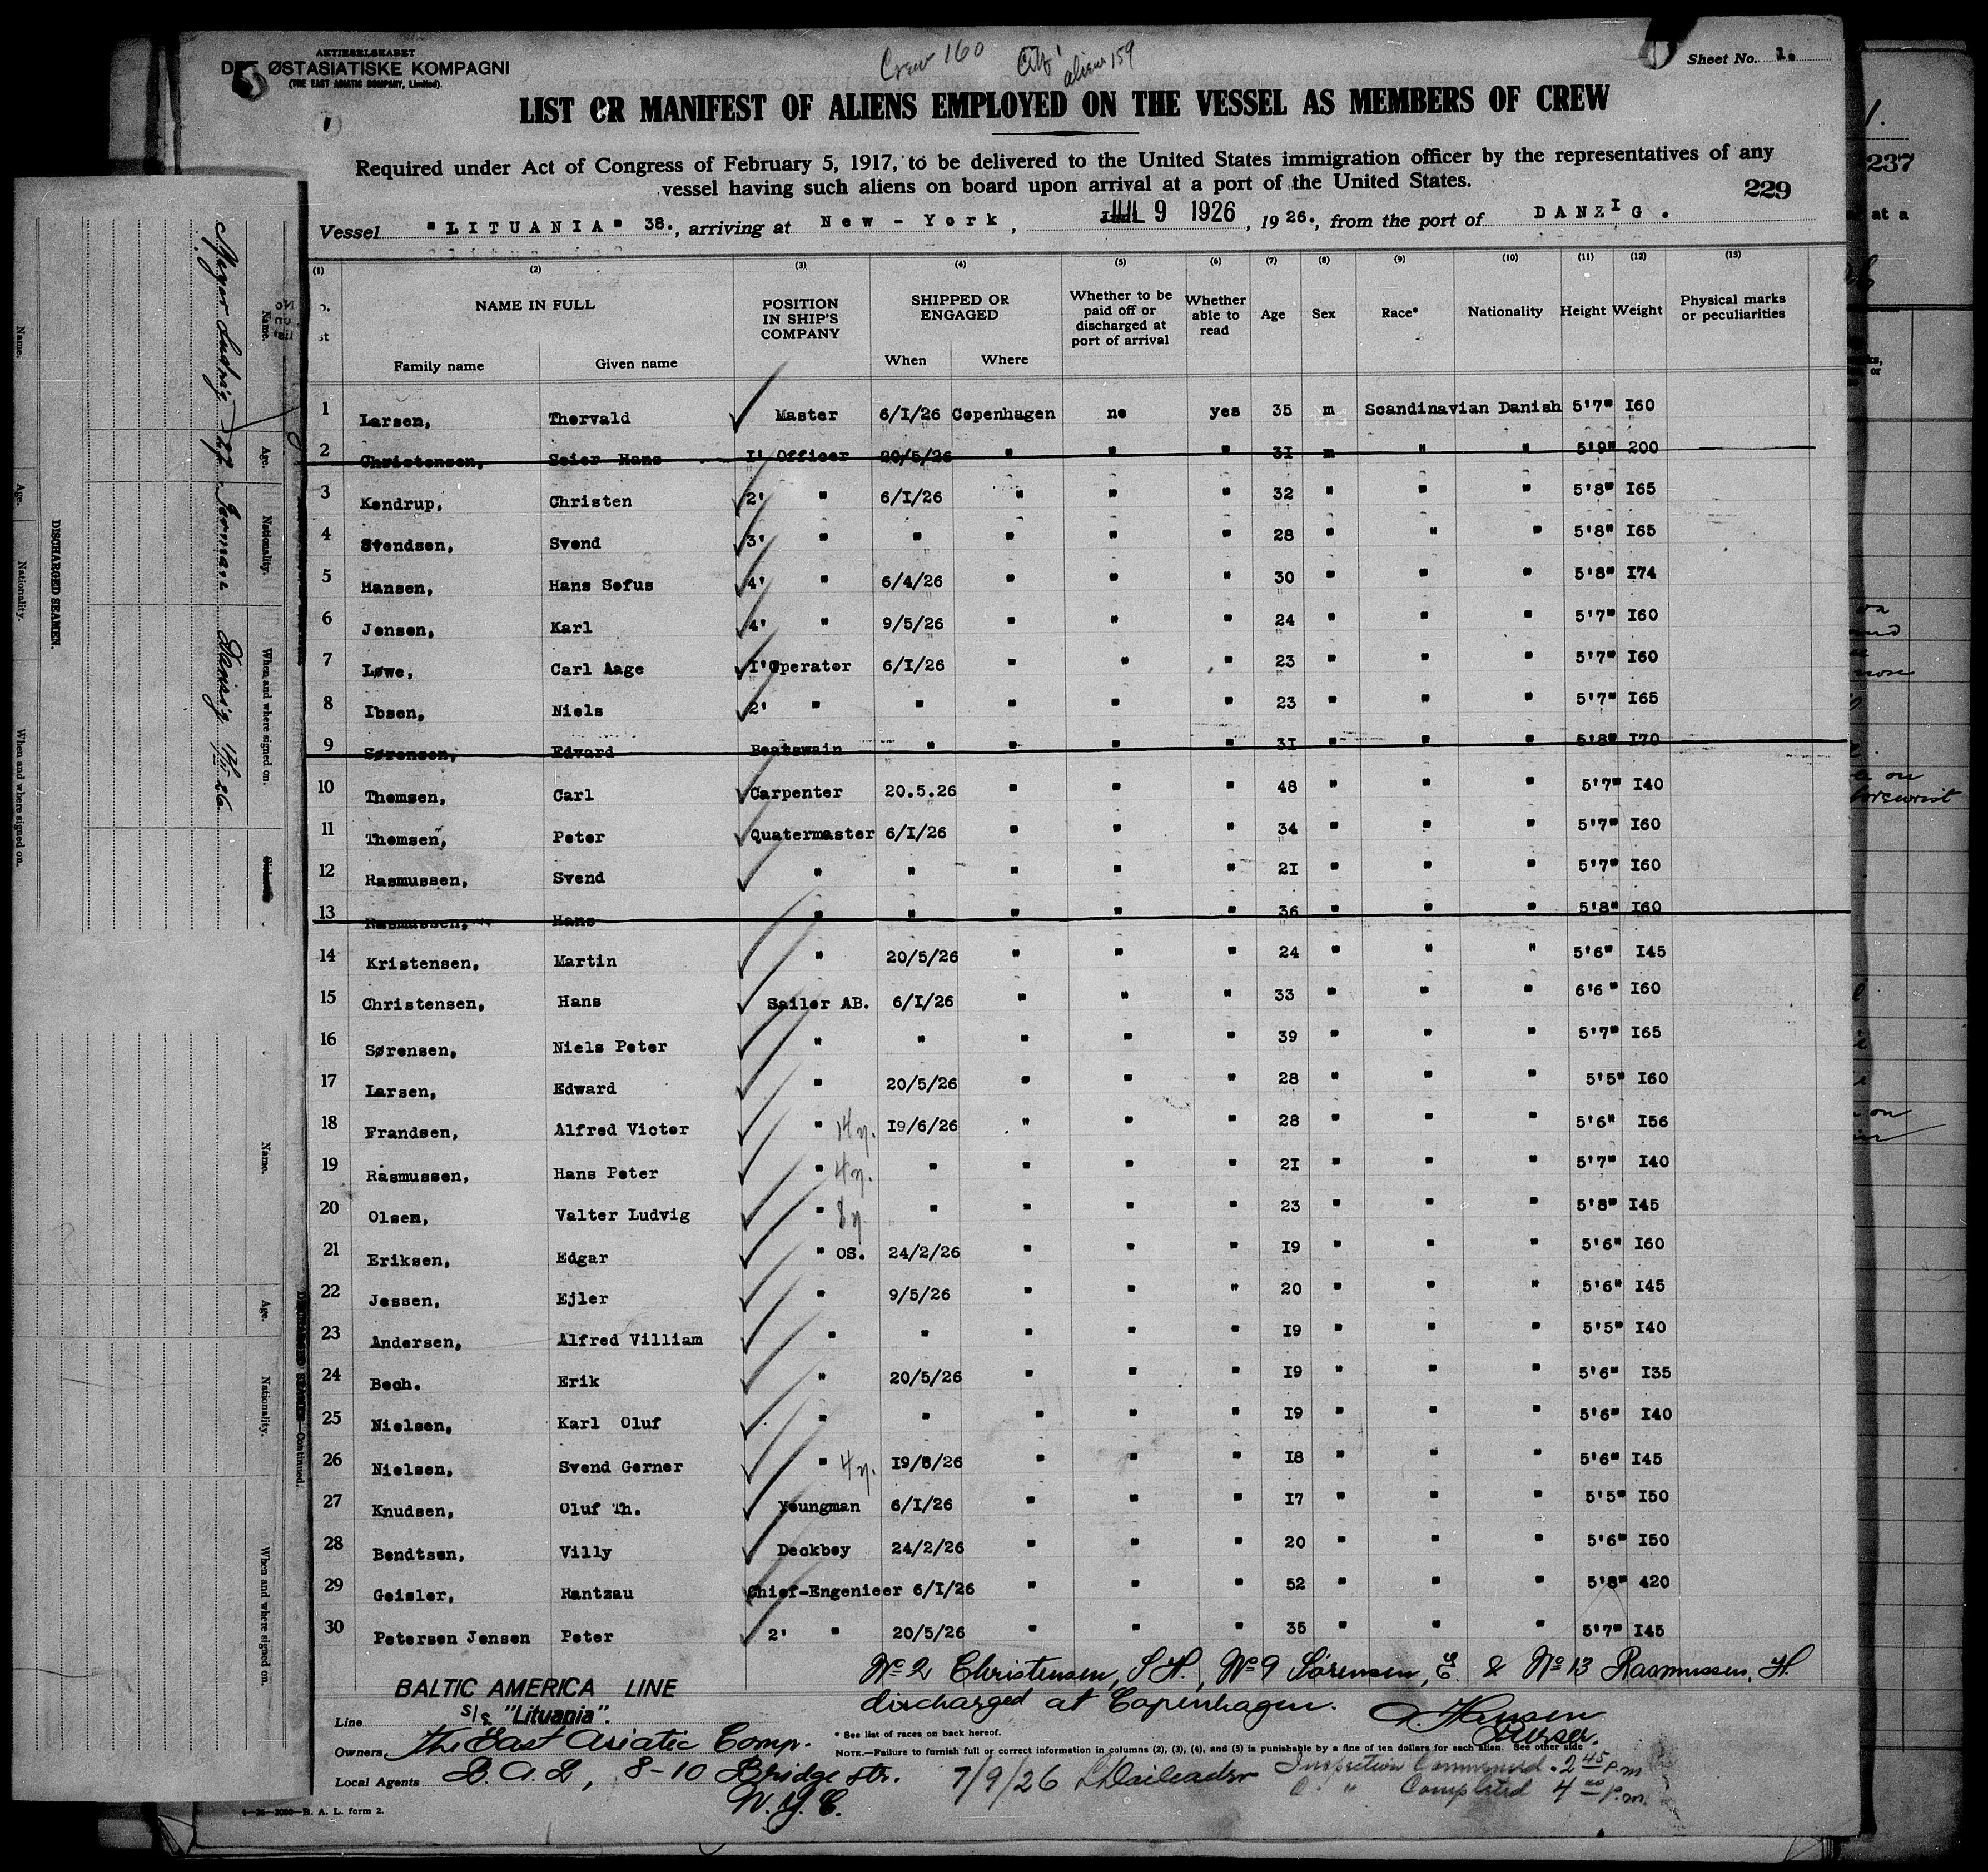 AKTIESELSKABET
DET ØSTASIATISKE KOMPAGNI
(THE EAST ASIATIC COMPANY, Limited).
Crew 160
aliens 159
Sheet No. 1.
LIST OR MANIFEST OF ALIENS EMPLOYED ON THE VESSEL AS MEMBERS OF CREW
Required under Act of Congress of February 5, 1917, to be delivered to the United States immigration officer by the representatives of any
vessel having such aliens on board upon arrival at a port of the United States.
229
Vessel "LITUANIA" 38., arriving at New-York, JUL 9 1926, 1926., from the port of DANZIG.
(1) (2) (3) (4) (5) (6) (7) (8) (9) (10) (11) (12) (13)
NAME IN FULL
Family name Given name
POSITION IN SHIP'S COMPANY
SHIPPED OR ENGAGED
When Where
Whether to be paid off or discharged at port of arrival
Whether able to read
Age Sex Race* Nationality Height Weight
Physical marks or peculiarities
1 Larsen, Thorvald Master 6/I/26 Copenhagen no yes 35 m Scandinavian Danish 5'7" I60
2 Christensen, Seier Hans I' Officer 20/5/26 " " " 3I m " " 5'9" 200
3 Kondrup, Christen 2' " 6/I/26 " " " 32 " " " 5'8" I65
4 Svendsen, Svend 3' " " " " " 28 " " " 5'8" I65
5 Hansen, Hans Sofus 4' " 6/4/26 " " " 30 " " " 5'8" I74
6 Jensen, Karl 4' " 9/5/26 " " " 24 " " " 5'7" I60
7 Løwe, Carl Aage I'Operator 6/I/26 " " " 23 " " " 5'7" I60
8 Ibsen, Niels 2' " " " " " 23 " " " 5'7" I65
9 Sørensen, Edvard Boatswain " " " " 3I " " " 5'8" I70
10 Thomsen, Carl Carpenter 20.5.26 " " " 48 " " " 5'7" I40
11 Thomsen, Peter Quatermaster 6/I/26 " " " 34 " " " 5'7" I60
12 Rasmussen, Svend " " " " " 2I " " " 5'7" I60
13 Rasmussen, Hans " " " " " 36 " " " 5'8" I60
14 Kristensen, Martin " 20/5/26 " " " 24 " " " 5'6" I45
15 Christensen, Hans Sailor AB. 6/I/26 " " " 33 " " " 6'6" I60
16 Sørensen, Niels Peter " " " " " 39 " " " 5'7" I65
17 Larsen, Edward " 20/5/26 " " " 28 " " " 5'5" I60
18 Frandsen, Alfred Victor " 14 y. I9/6/26 " " " 28 " " " 5'6" I56
19 Rasmussen, Hans Peter " 4 y. " " " " 2I " " " 5'7" I40
20 Olsen, Valter Ludvig " 8 y. " " " " 23 " " " 5'8" I45
21 Eriksen, Edgar " OS. 24/2/26 " " " I9 " " " 5'6" I60
22 Jessen, Ejler " 9/5/26 " " " 20 " " " 5'6" I45
23 Andersen, Alfred Villiam " " " " " I9 " " " 5'5" I40
24 Bech. Erik " 20/5/26 " " " I9 " " " 5'6" I35
25 Nielsen, Karl Oluf " " " " " I9 " " " 5'6" I40
26 Nielsen, Svend Gerner " 4 y. I9/6/26 " " " I8 " " " 5'6" I45
27 Knudsen, Oluf Th. Youngman 6/I/26 " " " I7 " " " 5'5" I50
28 Bendtsen, Villy Deckboy 24/2/26 " " " 20 " " " 5'6" I50
29 Geisler, Rantzau Chief-Engenieer 6/I/26 " " " 52 " " " 5'8" 420
30 Petersen Jensen Peter 2' " 20/5/26 " " " 35 " " " 5'7" I45
No 2 Christensen, S.H., No 9 Sørensen, E. & No 13 Rasmussen, H.
discharged at Copenhagen.
Hansen
Purser.
BALTIC AMERICA LINE
Line S/S. "Lituania".
Owners The East Asiatic Comp.
Local Agents B.A.L, 8-10 Bridge Str.
N.Y.C.
* See list of races on back hereof.
NOTE.—Failure to furnish full or correct information in columns (2), (3), (4), and (5) is punishable by a fine of ten dollars for each alien. See other side
7/9/26
Inspection Commenced . 2 45 P.m
" Completed 4 00 P.m.
4—24—2000—B. A. L. form 2.
DISCHARGED SEAMEN.
Name. Age. Nationality. When and where signed on.
Meyer Ludwig 27 German Danzig 26.
DISCHARGED SEAMEN—Continued.
Name. Age. Nationality. When and where signed on.
237
at a
nose
on